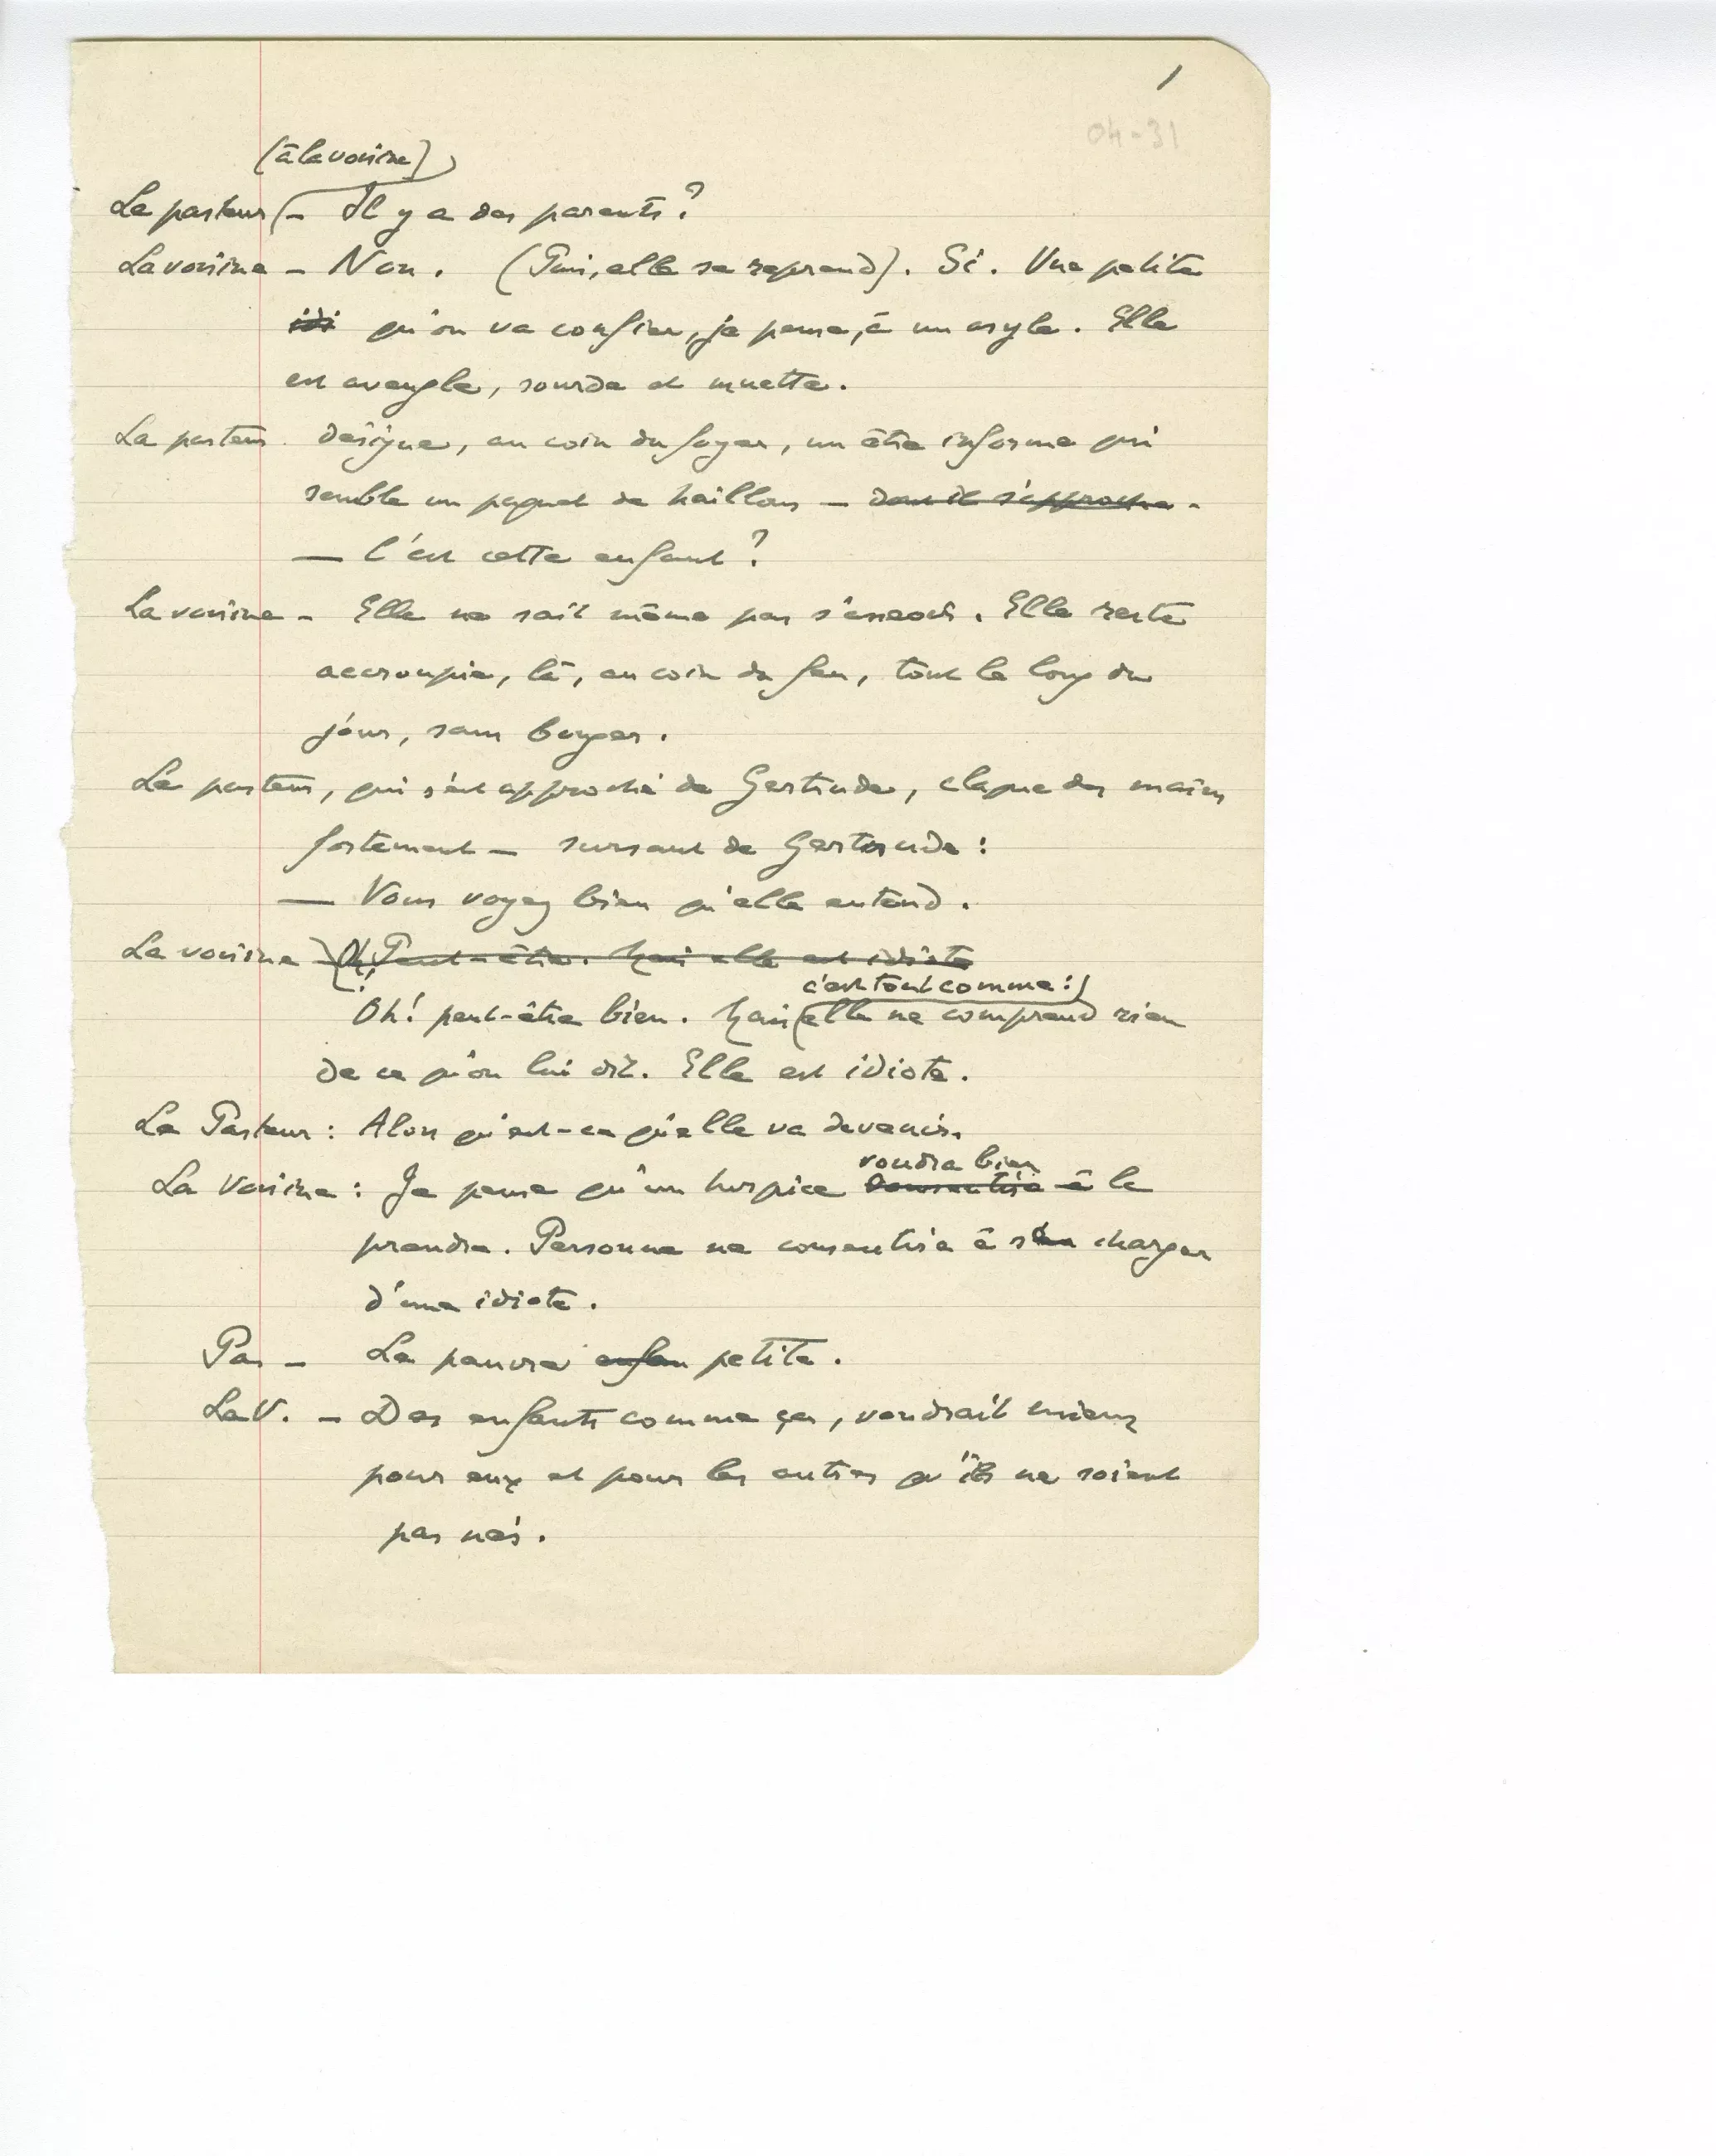 1
04-31
(à la voisine)
Le pasteur – Il y a des parents?
La voisine – Non. (Puis, elle se reprend). Si. Une petite
ici qu'on va confier, je pense, à un asyle. Elle
est aveugle, sourde et muette.
Le pasteur désigne, au coin du foyer, un être informe qui
semble un paquet de haillons – dont il s'approche.
— C'est cette enfant?
La voisine – Elle ne sait même pas s'asseoir. Elle reste
accroupie, là, au coin du feu, tout le long du
jour, sans bouger.
Le pasteur, qui s'est approché de Gertrude, claque des mains
fortement – sursaut de Gertrude:
— Vous voyez bien qu'elle entend.
La voisine Oh! Peut-être. Mais elle est idiote
c'est tout comme:
Oh! peut-être bien. Mais elle ne comprend rien
de ce qu'on lui dit. Elle est idiote.
Le Pasteur: Alors qu'est-ce qu'elle va devenir.
voudra bien
La Voisine: Je pense qu'un hospice consentira à la
prendre. Personne ne consentira à s'en charger
d'une idiote.
Pas – La pauvre enfan petite.
La V. – Des enfants comme ça, vaudrait mieux
pour eux et pour les autres qu'ils ne soient
pas nés.